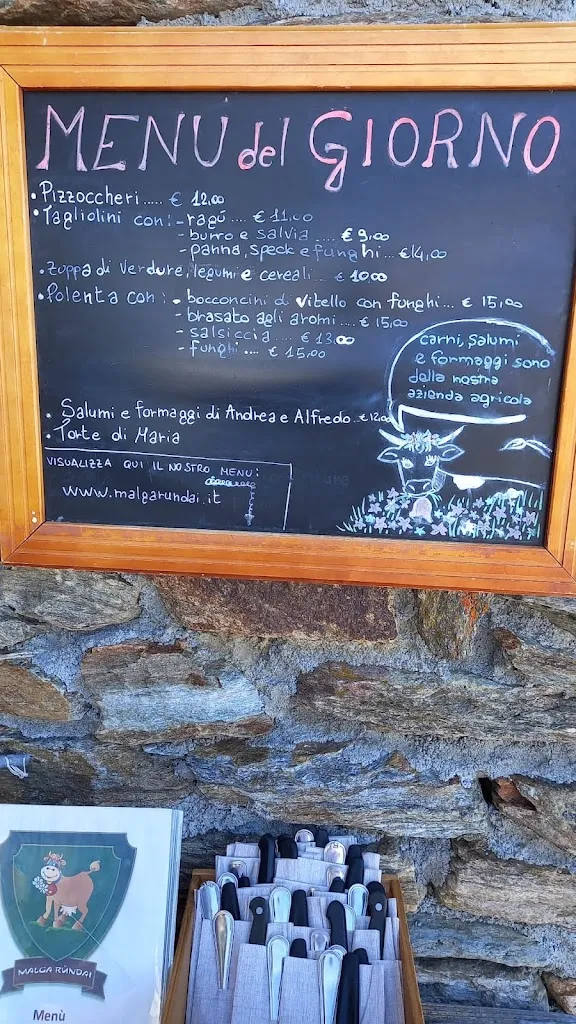 MENU del GIORNO
• Pizzoccheri..... € 12,00
• Tagliolini con: - ragú .... € 11,00
- burro e salvia .... € 9,00
- panna, speck e funghi... €14,00
• zuppa di verdure, legumi e cereali... € 10,00
• Polenta con: • bocconcini di vitello con funghi... € 15,00
- brasato agli aromi.... € 15,00
- salsiccia.... € 13,00
- funghi .... € 15,00
carni, salumi
e formaggi sono
della nostra
azienda agricola
• Salumi e formaggi di Andrea e Alfredo..€ 12,00
• Torte di Maria
VISUALIZZA QUI IL NOSTRO MENU:
www.malgarundai.it
MALGA RÜNDAI
Menù